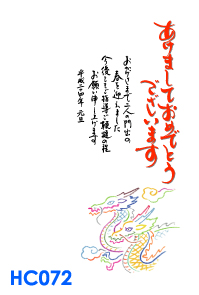 あけましておめでとう
ございます
おかげさまで二人の門出の
春を迎えました
今後ともご指導ご鞭撻の程
お願い申し上げます
平成二四年 元旦
HC072